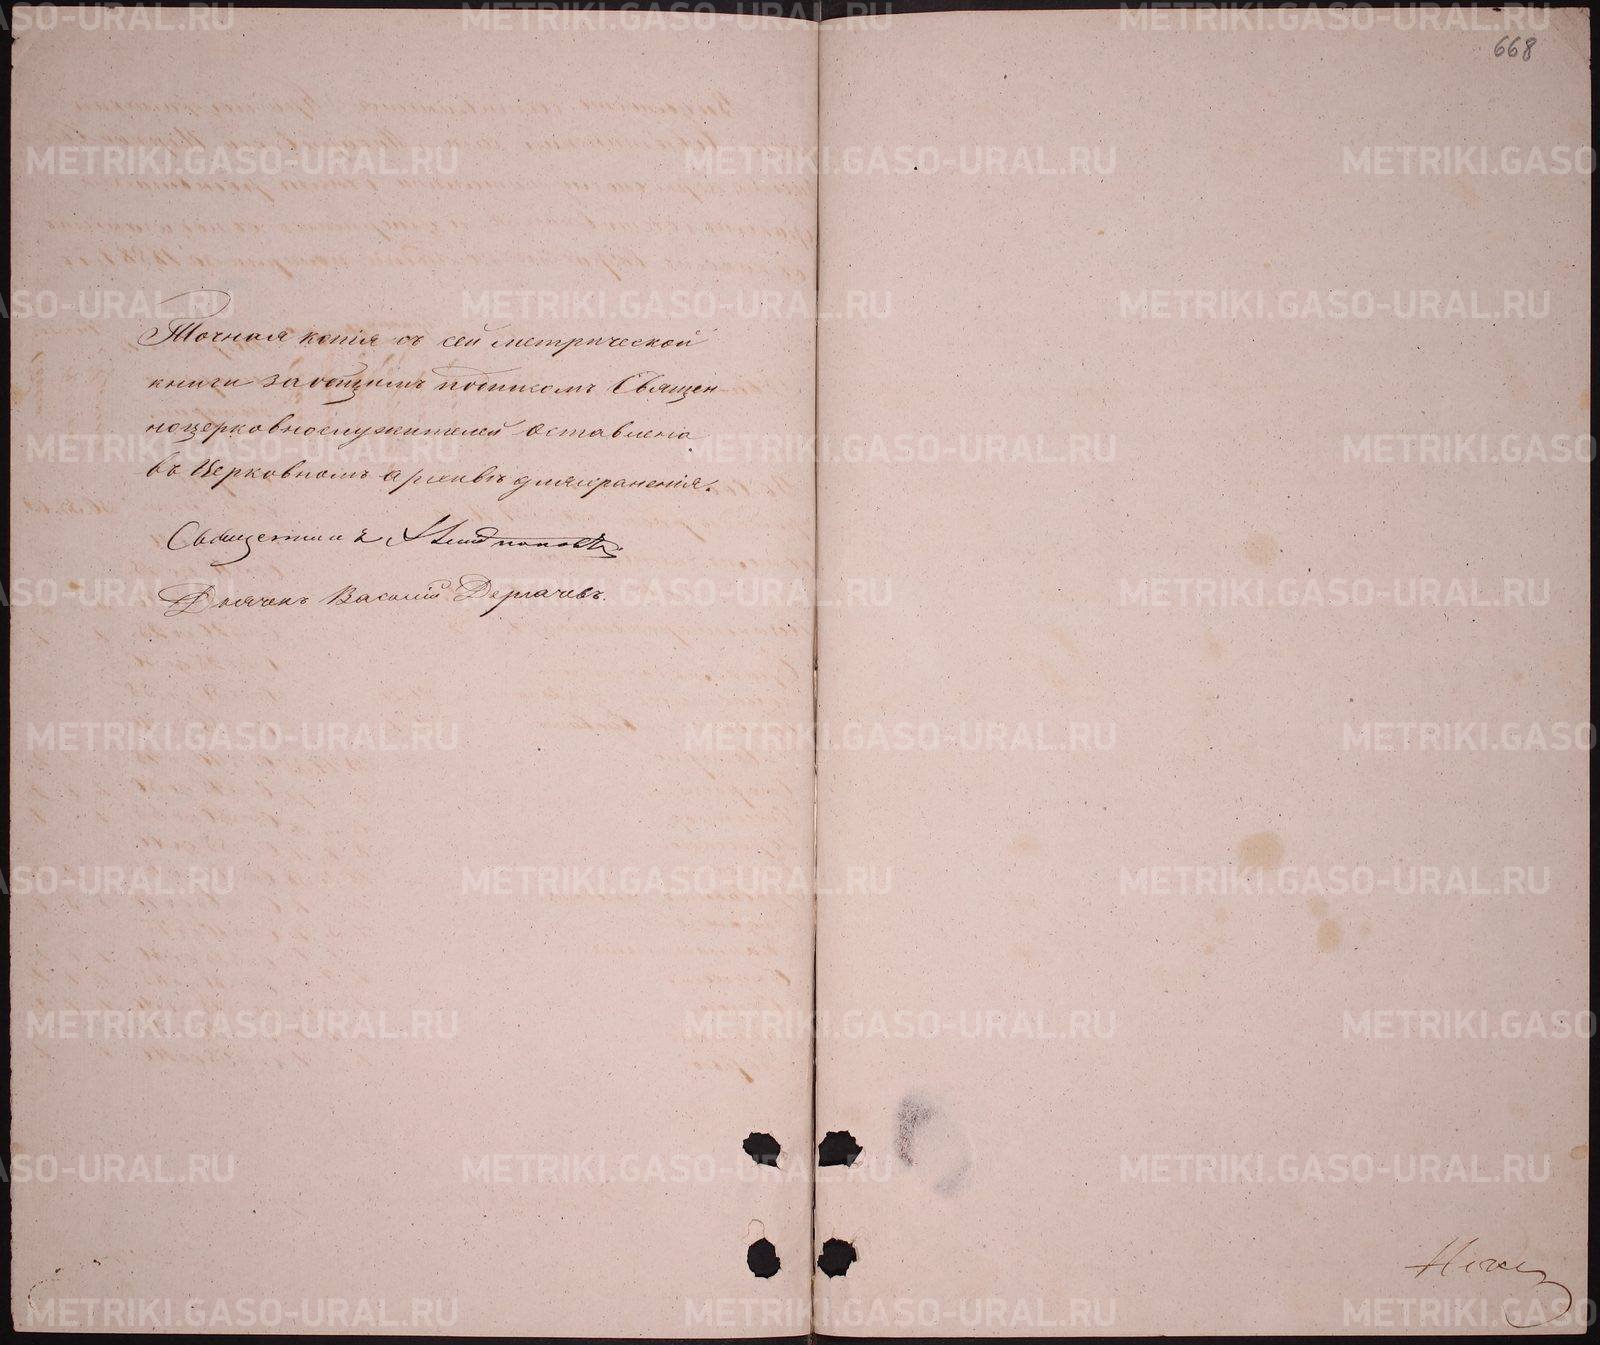 668
Точная копія съ сей метрической
книги за общимъ подписомъ Священ
ноцерковнослужителей оставлена
въ Церковномъ архивѣ для храненія.
Священникъ
Дьячекъ Василій Дергачевъ.
METRIKI.GASO-URAL.RU